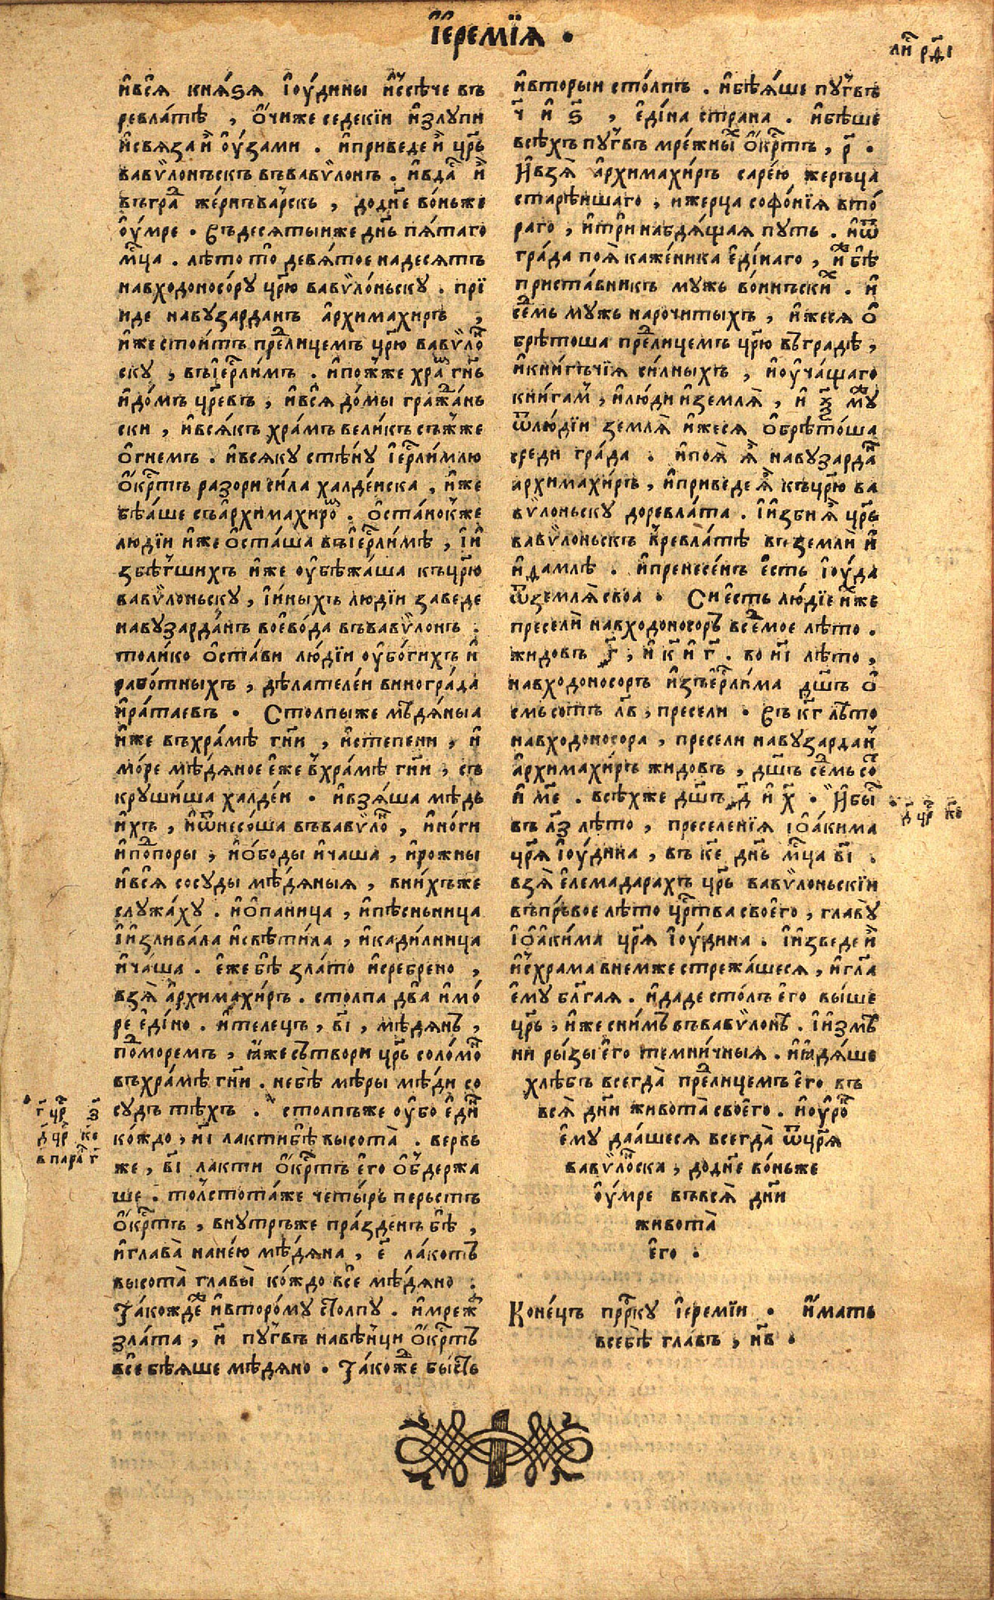 І҆еремі́ѧ .
ли́ рд҃і
и҆всѧ̀ кнѧ́ѕѧ і҆ю́дины и҆ссѣ́че въ
ревла́тѣ , ѻ҆́чиже седекі́и и҆злупи
и҆свѧза и҆ ѻу҆́зами . и҆приведе и҆̀ цр҃ь
вавѷлоньскъ въвавѷлонъ . и҆вда́ и҆̀
въгра́ же́рновьрскъ , додн҃е во́ньже
ѻу҆́мре . Въдесѧтыиже дн҃ь пѧ́таго
мц҃а . лѣ́то то̀ девѧ́тое надесѧтъ
навходоносо́ру цр҃ю вавѷло́ньску . прі
иде навузарданъ а҆рхимахи́ръ ,
и҆́же стои́тъ пре́лицемъ цр҃ю вавѷло
ску , въі҆ер҃ли́мъ . и҆по́жже хра́ гн҃ь
и҆до́мъ цр҃евъ , и҆всѧ̀ до́мы гража́нь
ски , и҆всѧ́къ хра́мъ вели́къ съжже
ѻ҆гнемъ . и҆всѧку стѣ́ну і҆ер҃ли́млю
ѻ҆́кр҃тъ разори си́ла халде́йска , и҆́же
бѣ́аше съа҆рхимахиро́ . ѻ҆ста́нокже
лю́дїи и҆́же ѻ҆ста́ша въі҆ер҃ли́мѣ , і҆и҆
збѣ́гшихъ и҆́же ѻу҆бѣжа́ша къцр҃ю
вавѷло́ньску , і҆и҆ны́хъ лю́дїи заведе
навузарда́нъ воево́да въвавѷлонъ .
толи́ко ѻ҆ста́ви лю́дїи ѻу҆бо́гихъ и҆
рабо́тныхъ , дѣ́лателе́и виногра́да
и҆ра́таевъ . Столпы́же мѣ́дѧныа
и҆́же въхра́мѣ гн҃и , и҆степени , и҆
мо́ре мѣ́дѧное е҆́же въхра́мѣ гн҃и , съ
круши́ша халде́и . и҆взѧ́ша мѣ́дь
и҆́хъ , и҆ѿнесо́ша въвавѷло́ , и҆но́ги
и҆по́поры , и҆ѻ҆боды и҆чаша , и҆рожны
и҆всѧ̀ сосуды мѣ́дѧныѧ , вни́хъже
служа́ху . и҆ѻ҆паница , и҆пѣсньница
і҆и҆злива́ла и҆свѣти́ла , и҆кади́лница
и҆ча́ша . е҆́же бѣ̀ зла́то и҆сребрено ,
взѧ̀ а҆рхимахи́ръ . столпа два̀ и҆мо́
ре е҆ди́но . и҆телецъ , в҃і , мѣ́дѧнъ ,
по́моремъ , ꙗ҆́же сътвори цр҃ь соломо́
въхра́мѣ гн҃и . небѣ̀ мѣ́ры мѣ́ди со
судъ тѣ́хъ . столпъже ѻу҆бо е҆ди́
ко́ждо , и҃і лакти́ бѣ̀ высота̀ . вервь
же , в҃і ла́кти ѻ҆́кр҃тъ е҆го̀ ѻ҆бдержа
ше . то́лстота́же четы́рь перьстъ
ѻ҆́кр҃тъ , внутрьже пра́зденъ бѣ̀ ,
и҆глава̀ нане́ю мѣ́дѧна , е҃ ла́котъ
высота̀ главы̀ ко́ждо всѐ мѣ́дѧно .
Та́кожде и҆второ́му столпу . и҆мреж
зла́та , и҆ пу́гвъ навѣ́нци ѻ҆́кр҃тъ
всѐ бѣѧше мѣ́дѧно . Та́коже бысть
и҆вторыи сто́лпъ . и҆бѣѧ́ше пу́гвъ
ч҃ и҆ ѕ҃ , е҆ди́на страна . и҆бѣ́ше
всѣ́хъ пу́гвъ мре́жны ѻ҆́кр҃тъ , р҃ .
И҆взѧ̀ а҆рхимахи́ръ саре́ю жерьца
старѣ́ишаго , и҆жерца софо́нїѧ вто́
раго , и҆три набдѧ́щаѧ путь . и҆ѿ
гра́да поѧ̀ каже́ника е҆ди́наго , и҆́же бѣ̀
приста́вникъ мужь во́иньски . и҆
се́мь мужь нарочитыхъ , и҆́жесѧ ѻ҆
брѣ́тоша пре́лицемъ цр҃ю въгра́дѣ ,
и҆кни́гъчїѧ си́лныхъ , и҆ѻу҆ча́щаго
кни́гам , и҆лю́ди и҆землѧ̀ , и҆ ѯ҃ му́
ѿлю́дїи землѧ̀ и҆жесѧ ѻ҆брѣто́ша
среди гра́да . и҆поѧ̀ ѧ҆̀ навузарда́
а҆рхимахи́ръ , и҆приведе ѧ҆̀ къцр҃ю ва
вѷлоньску доревла́та . і҆и҆зби ѧ҆̀ цр҃ь
вавѷлоньскъ вревла́тѣ въземли и҆
и҆дамлѣ . и҆пренесе́нъ е҆сть і҆ю́да
ѿземлѧ̀ своа . Си е҆сть лю́дїе и҆́хже
пресели навходоносоръ всемое лѣ́то .
жидовъ г҃ , и҆ к҃ и҆ г҃ . во и҃і лѣ́то ,
навходоносоръ и҆зъі҆ер҃ли́ма дш҃ъ ѻ҆
смьсо́тъ л҃в , пресели . Въ к҃г лѣ́то
навходоно́сора , пресели навузарда́н
а҆рхимахи́ръ жидовъ , дш҃ъ се́мь со́
и҆ м҃е . всѣ́хже дш҃ъ д҃ и҆ х҃ . И҆бы́
въ л҃з лѣ́то , преселе́нїѧ і҆ѻ҆аки́ма
цр҃ѧ і҆ю́дина , въ к҃е дн҃ь мц҃а в҃і .
взѧ̀ е҆лемадарахъ цр҃ь вавѷлоньскіи
въпрьвое лѣ́то цр҃тва своего̀ , главу
і҆ѻ҆аки́ма цр҃ѧ і҆ю́дина . і҆и҆зведе и҆̀
и҆схрама внемже стрежа́шесѧ , и҆гл҃а
е҆му бл҃гаѧ . и҆даде сто́лъ е҆го̀ вы́ше
цр҃ь , и҆́же сни́мъ въвавѷло́нъ . і҆и҆змѣ
ни ри́зы е҆го̀ темни́чныѧ . и҆ꙗ҆дѧ́ше
хлѣ́бъ всегда̀ пре́лицемъ е҆го̀ въ
всѧ̀ дн҃и живота̀ своего̀ . и҆ѻу҆ро́
е҆му даа́шесѧ всегда̀ ѿцр҃ѧ
вавѷло́ска , додн҃е во́ньже
ѻу҆́мре въвсѧ̀ дн҃и
живота̀
е҆го̀ .
Коне́цъ прр҃ку і҆еремі́и . и҆́мать
всебѣ̀ гла́въ , н҃в .
г҃ цр҃ з҃
д҃ цр҃ к҃е
в пара́ г҃
д҃ цр҃ к҃е